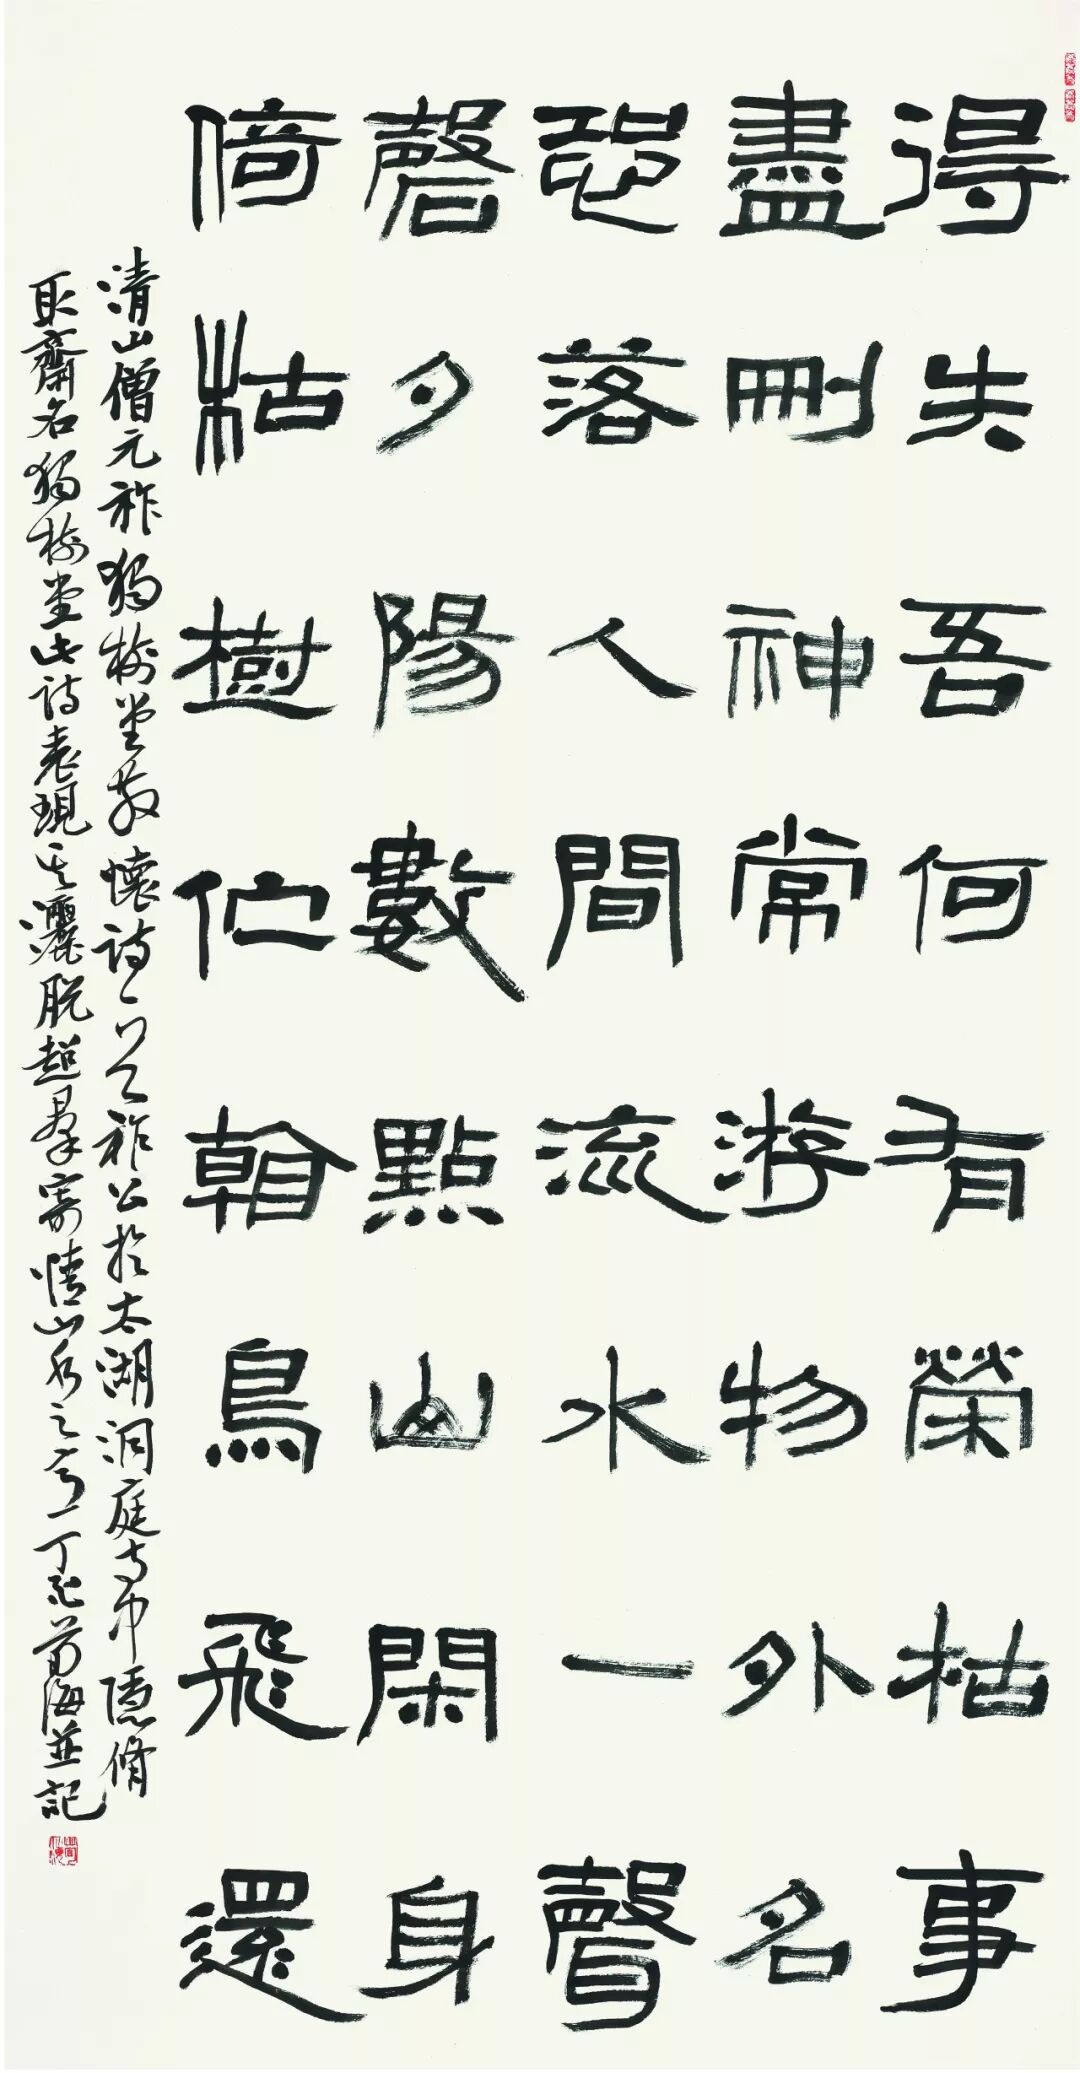 得失吾何有榮枯事
盡刪神常游物外名
恐落人間流水一聲
磬夕陽數點山閑身
倚枯樹伫朝鳥飛還
清山僧元祚獨樹堂散懷詩一首祚公於太湖洞庭寺中隱脩
取齋名獨樹堂此詩表現其灑脫超羣寄情山水之意丁酉海並記